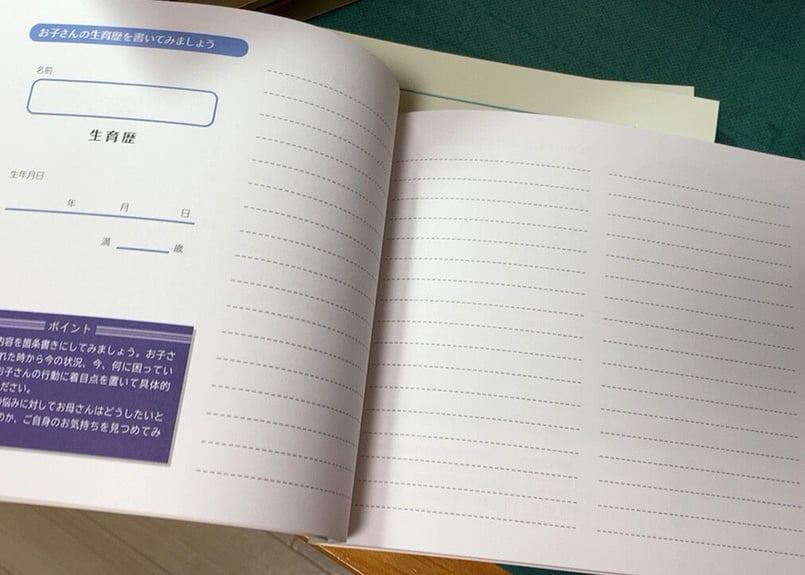 お子さんの生育歴を書いてみましょう
名前
生育歴
生年月日
年 月 日
満 歳
ポイント
内容を箇条書きにしてみましょう。お子さ
れた時から今の状況、今、何に困ってい
お子さんの行動に着目点を置いて具体的
ださい。
悩みに対してお母さんはどうしたいと
のか、ご自身のお気持ちを見つめてみ